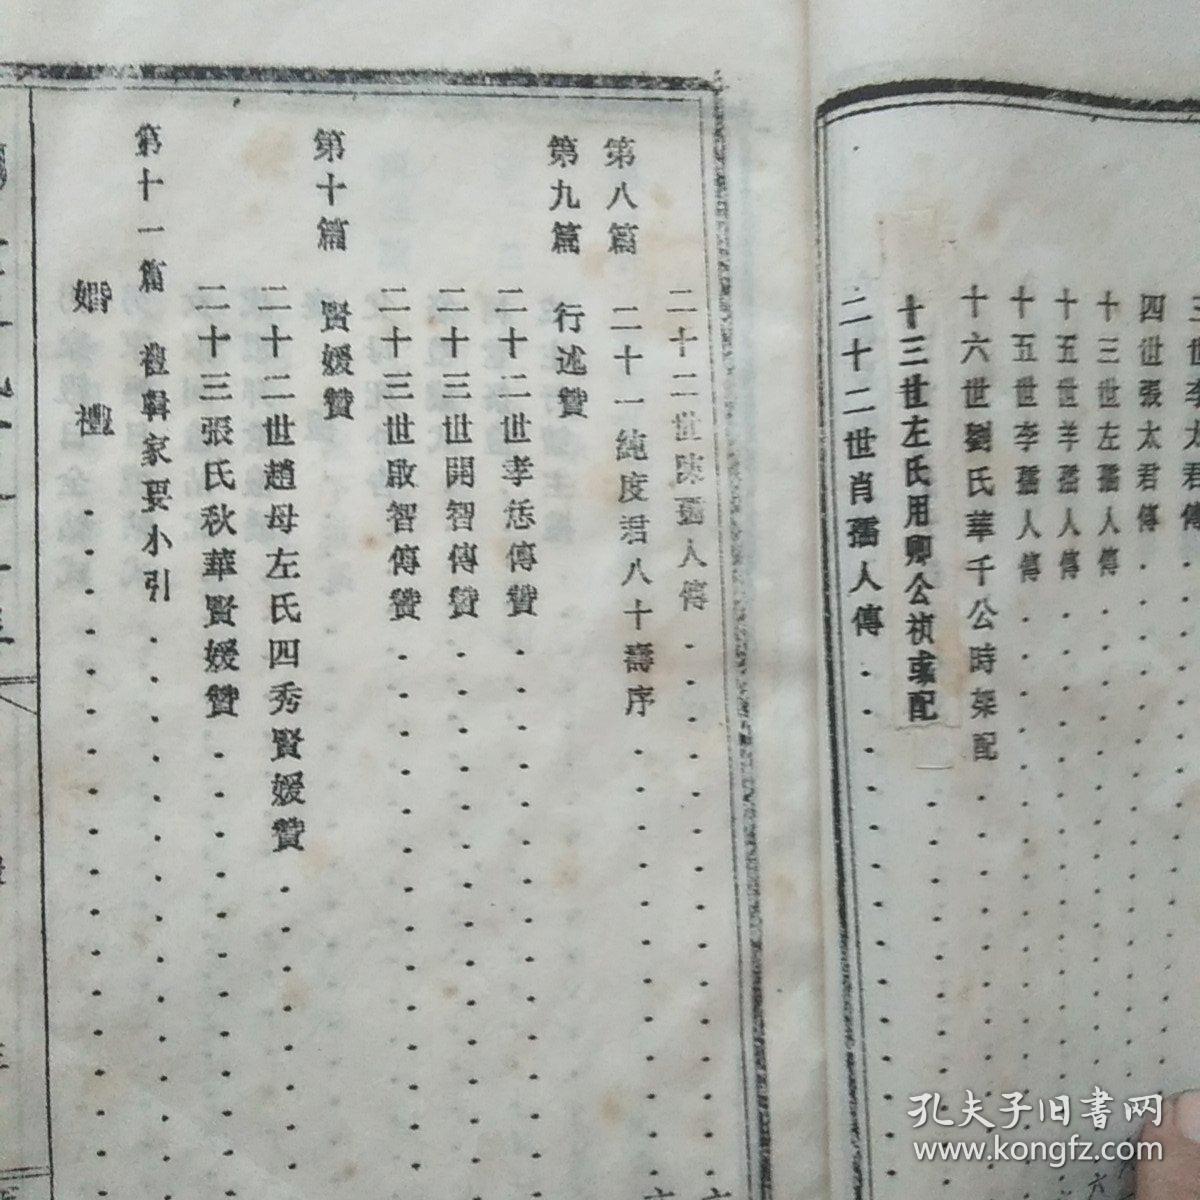 三世李太君傳
四世張太君傳
十三世左孺人傳
十五世羊孺人傳
十五世李孺人傳
十六世劉氏華千公時架配
十三世左氏用卿公禎彧配
二十二世肖孺人傳
二十二世陳孺人傳
第八篇 二十一純度君八十壽序
第九篇 行述贊
二十二世孝恁傳贊
二十三世開智傳贊
二十三世啟智傳贊
第十篇 賢媛贊
二十二世趙母左氏四秀賢媛贊
二十三張氏秋華賢媛贊
第十一篇 禮輯家要小引
婚禮
孔夫子旧書网
www.kongfz.com